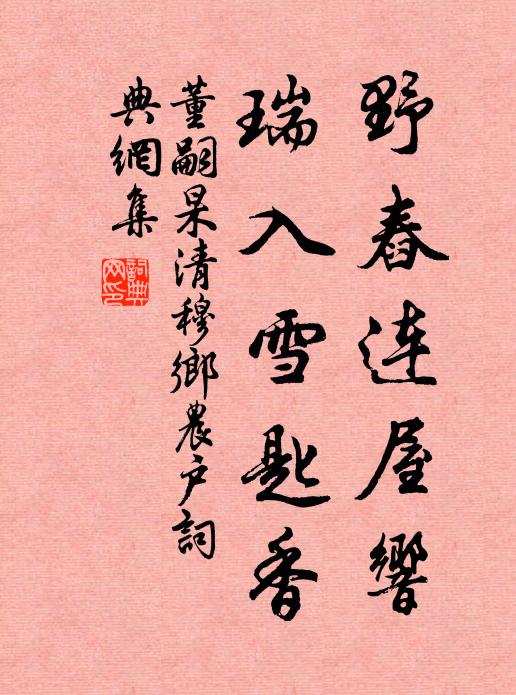 野舂连屋響
瑞入雪匙香
董嗣杲清穆鄉農户詞
典網集
詞典網印